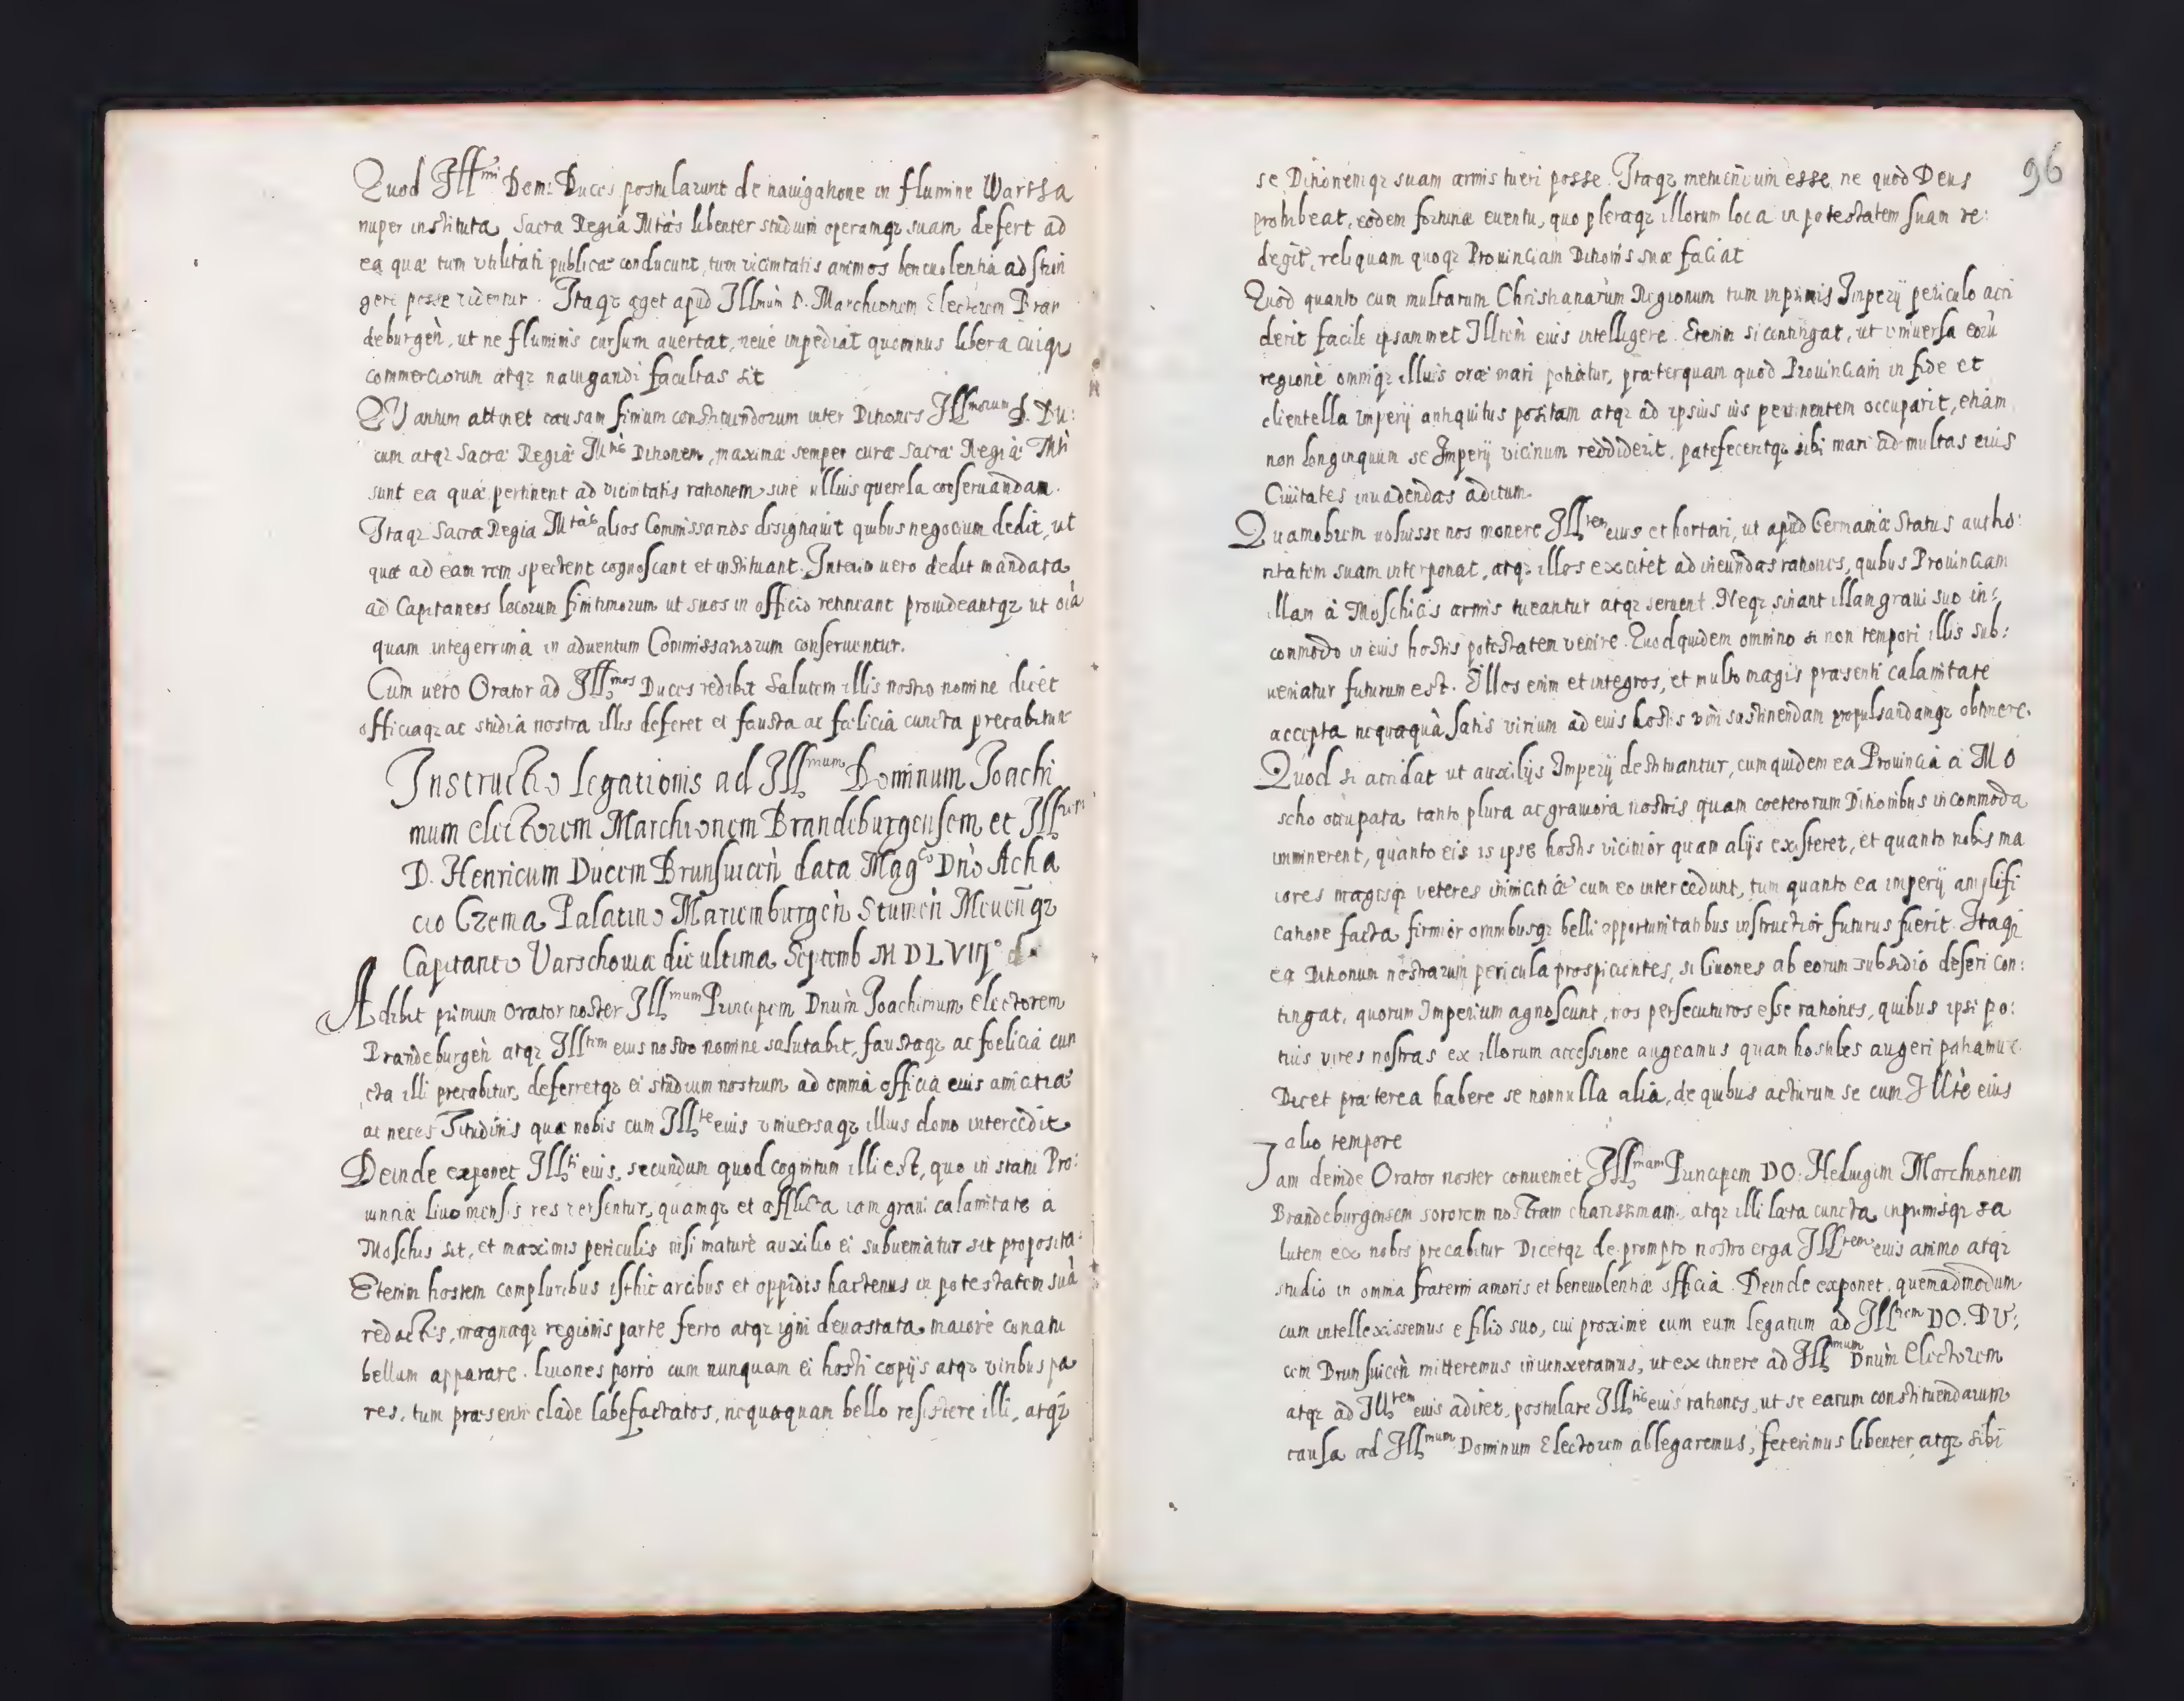 Quod Illmi Dom: Duces postularunt de nauigatione in flumine Wartha
nuper instituta Sacra Regia Mtas libenter studium operamqꝫ suam defert ad
ea quæ tum vtilitati publicæ conducunt, tum vicinitatis animos beneuolentia adstrin
gere posse videntur. Itaqꝫ aget apud Illmum D. Marchionem Electorem Bran
deburgen, ut ne fluminis cursum auertat, neue impediat quominus libera cuiqꝫ
commerciorum atqꝫ nauigandi facultas sit
QVantum attinet causam finium constituendorum inter Ditiones Illmorum D. Du:
cum atqꝫ Sacræ Regiæ Mtis Ditionem, maximæ semper curæ Sacræ Regiæ Mti
sunt ea quæ pertinent ad vicinitatis rationem sine ullius querela conseruandam.
Itaqꝫ Sacra Regia Mtas alios Commissarios designauit quibus negocium dedit, ut
quæ ad eam rem spectent cognoscant et instituant. Interim uero dedit mandata
ad Capitaneos locorum finitimorum ut suos in officio retineant prouideantqꝫ ut oia
quam integerrima in aduentum Commissariorum conseruentur.
Cum uero Orator ad Illmos Duces redibit Salutem illis nostro nomine dicet
officiaqꝫ ac studia nostra illis deferet et fausta ac fœlicia cuncta precabitur
Instructio legationis ad Illmum Dominum Joachi
mum electorem Marchionem Brandeburgensem et Illmum
D. Henricum Ducem Brunsuicen data Magco Dno Acha
cio Czema Palatino Mariemburgen Stumen Meuenqꝫ
Capitaneo Varschouiæ die ultima Septemb MDLVIII
Adibit primum Orator noster Illmum Principem Dnum Joachimum Electorem
Brandeburgen atqꝫ Illtem eius nostro nomine salutabit, faustaqꝫ ac fœlicia cun
cta illi precabitur, deferretqꝫ ei studium nostrum ad omnia officia eius amicitiæ
ac necessitudinis quæ nobis cum Illte eius vniuersaqꝫ illius domo intercedit
Deinde exponet Illti eius, secundum quod cognitum illi est, quo in statu Pro:
uinciæ Liuoniensis res versentur, quamqꝫ et afflicta iam graui calamitate a
Moschis sit, et maximis periculis nisi mature auxilio ei subueniatur sit proposita:
Etenim hostem compluribus isthic arcibus et oppidis hactenus in potestatem suã
redactis, magnaqꝫ regionis parte ferro atqꝫ igni deuastata maiore conatu
bellum apparare. Liuones porro cum nunquam ei hosti copijs atqꝫ viribus pa
res, tum præsenti clade labefactatos, nequaquam bello resistere illi, atqꝫ
96
se Ditionemqꝫ suam armis tueri posse. Itaqꝫ metuendum esse, ne quod Deus
prohibeat, eodem fortunæ euentu, quo pleraqꝫ illorum loca in potestatem suam re:
degit, reliquam quoqꝫ Prouinciam Ditionis suæ faciat
Quod quanto cum multarum Christianarum Regionum tum inprimis Imperij periculo acci
derit facile ipsammet Illtem eius intelligere. Etenim si contingat, ut vniuersa eorũ
regione omniqꝫ illius oræ mari potiatur, præterquam quod Prouinciam in fide et
clientella Imperij antiquitus positam atqꝫ ad ipsius ius pertinentem occuparit, etiam
non longinquum se Imperij vicinum reddiderit, patefeceritqꝫ sibi mari ad multas eius
Ciuitates inuadendas aditum.
Quamobrem uoluisse nos monere Illtem eius et hortari, ut apud Germaniæ Status autho:
ritatem suam interponat, atqꝫ illos excitet ad ineundas rationes, quibus Prouinciam
illam à Moschicis armis tueantur atqꝫ seruent. Neqꝫ sinant illam graui suo in:
commodo in eius hostis potestatem venire. Quod quidem omnino si non tempori illis sub:
ueniatur futurum est. Illos enim et integros, et multo magis præsenti calamitate
accepta nequaquã satis virium ad eius hostis vim sustinendam propulsandamqꝫ obtinere.
Quod si accidat ut auxilijs Imperij destituantur, cum quidem ea Prouincia a Mo
scho occupata tanto plura ac grauiora nostris quam cœterorum Ditionibus incommoda
imminerent, quanto eis is ipse hostis vicinior quam alijs existeret, et quanto nobis ma
iores magisqꝫ veteres inimicitiæ cum eo intercedunt, tum quanto ea imperij amplifi
catione facta firmior omnibusqꝫ belli opportunitatibus instructior futurus fuerit. Itaqꝫ
ea Ditionum nostrarum pericula prospicientes, si Liuones ab eorum subsidio deseri con:
tingat, quorum Imperium agnoscunt, nos persecuturos esse rationes, quibus ipsi po:
tius vires nostras ex illorum accessione augeamus quam hostiles augeri patiamur.
Dicet præterea habere se nonnulla alia, de quibus acturum se cum Illte eius
alio tempore
Iam deinde Orator noster conueniet Illmam Principem DO. Heduigim Marchionem
Brandeburgensem sororem nostram charissimam, atqꝫ illi læta cuncta inprimisqꝫ sa
lutem ex nobis precabitur Dicetqꝫ de prompto nostro erga Illtem eius animo atqꝫ
studio in omnia fraterni amoris et beneuolentiæ officia. Deinde exponet, quemadmodum
cum intellexissemus e filio suo, cui proxime cum eum legatum ad Illtem DO. DV:
cem Brunsuicen mitteremus iniunxeramus, ut ex itinere ad Illmum Dnum Electorem
atqꝫ ad Illtem eius adiret, postulare Illtis eius rationes, ut se earum constituendarum
causa ad Illmum Dominum Electorem ablegaremus, fecerimus libenter, atqꝫ sibi